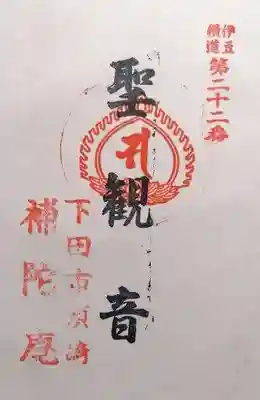 伊豆
横道
第二十二番
聖観音
下田市須崎
補陀庵